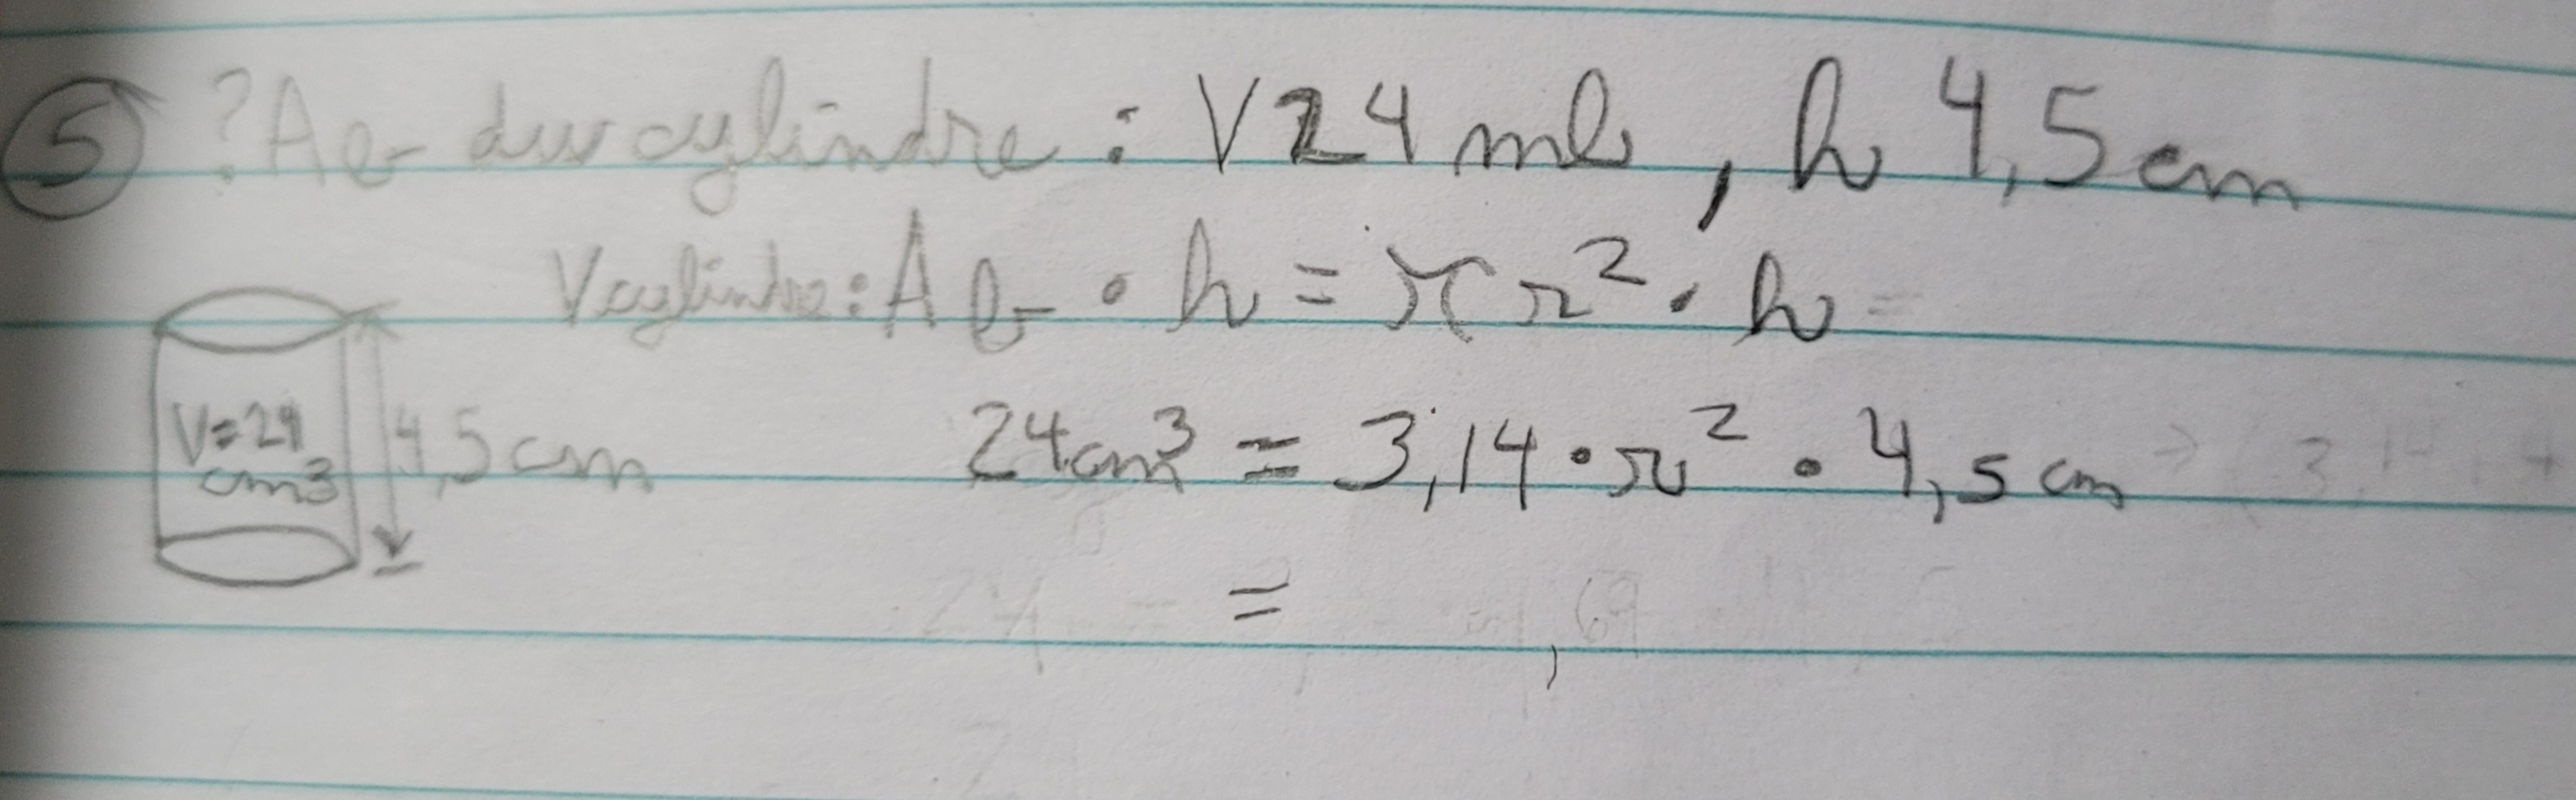 5 ? Ab du cylindre : V 24 ml, h 4,5 cm
V cylindre : Ab • h = πr² • h =
V=24
cm3
4,5 cm
24cm³ = 3,14 • r² • 4,5 cm
=